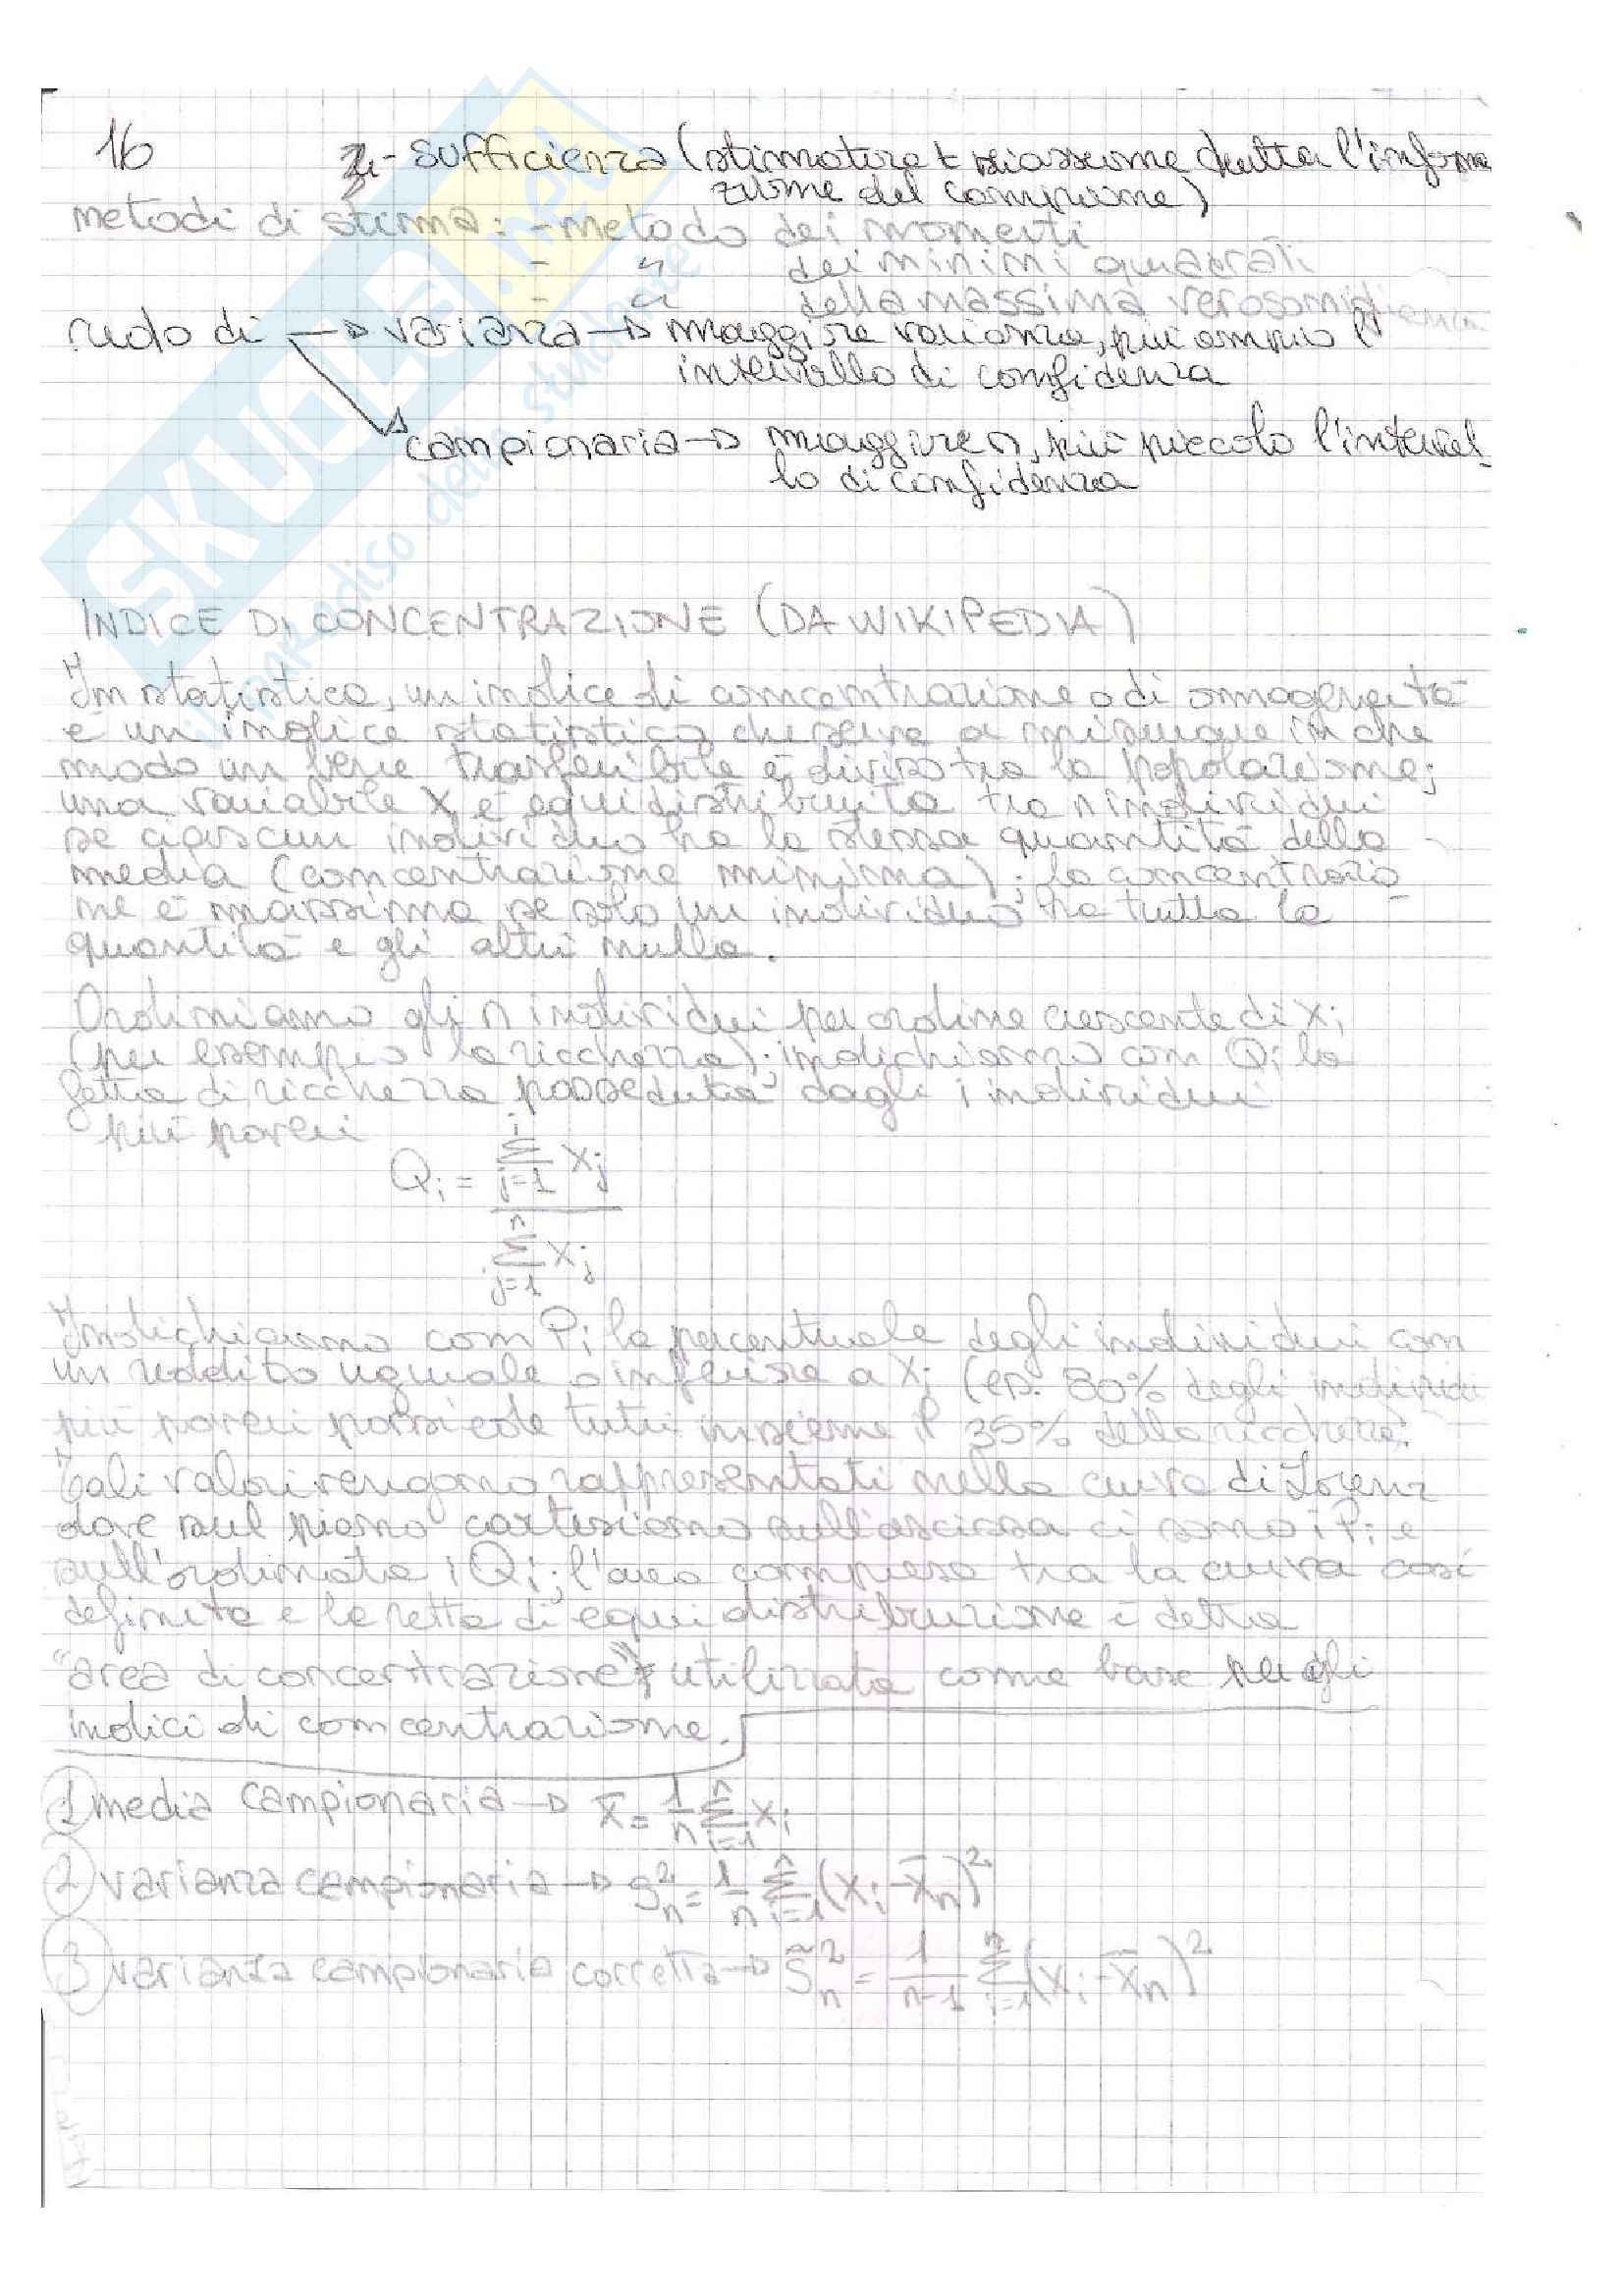 16
- sufficienza (stimatore t riassume tutta l'informa
zione del campione)
metodi di stima: - metodo dei momenti
- " dei minimi quadrati
- " della massima verosomiglianza
ruolo di → varianza → maggiore varianza, più ampio l'
intervallo di confidenza
campionaria → maggiore n, più piccolo l'interval
lo di confidenza
SKUOLA.net
il paradiso dello studente
INDICE DI CONCENTRAZIONE (DA WIKIPEDIA)
In statistica, un indice di concentrazione o di omogeneità
è un indice statistico che serve a misurare in che
modo un bene trasferibile è diviso tra la popolazione;
una variabile X è equidistribuita tra n individui
se ciascun individuo ha la stessa quantità della
media (concentrazione minima); la concentrazio
ne è massima se solo un individuo ha tutta la
quantità e gli altri nulla.
Ordiniamo gli n individui per ordine crescente di xi
(per esempio la ricchezza); indichiamo con Qi la
fetta di ricchezza posseduta dagli i individui
più poveri
Qi = Σ_{j=1}^{i} xj / Σ_{j=1}^{n} xj
Indichiamo con Pi la percentuale degli individui con
un reddito uguale o inferiore a xi (es. 80% degli individui
più poveri possiede tutti insieme il 35% della ricchezza.
Tali valori vengono rappresentati nella curva di Lorenz
dove sul piano cartesiano sull'ascissa ci sono i Pi e
sull'ordinata i Qi; l'area compresa tra la curva così
definita e la retta di equidistribuzione è detta
"area di concentrazione" utilizzata come base per gli
indici di concentrazione.
1 media campionaria → x̄ = 1/n Σ_{i=1}^{n} xi
2 varianza campionaria → S²n = 1/n Σ_{i=1}^{n} (xi - x̄n)²
3 varianza campionaria corretta → S̃²n = 1/(n-1) Σ_{i=1}^{n} (xi - x̄n)²